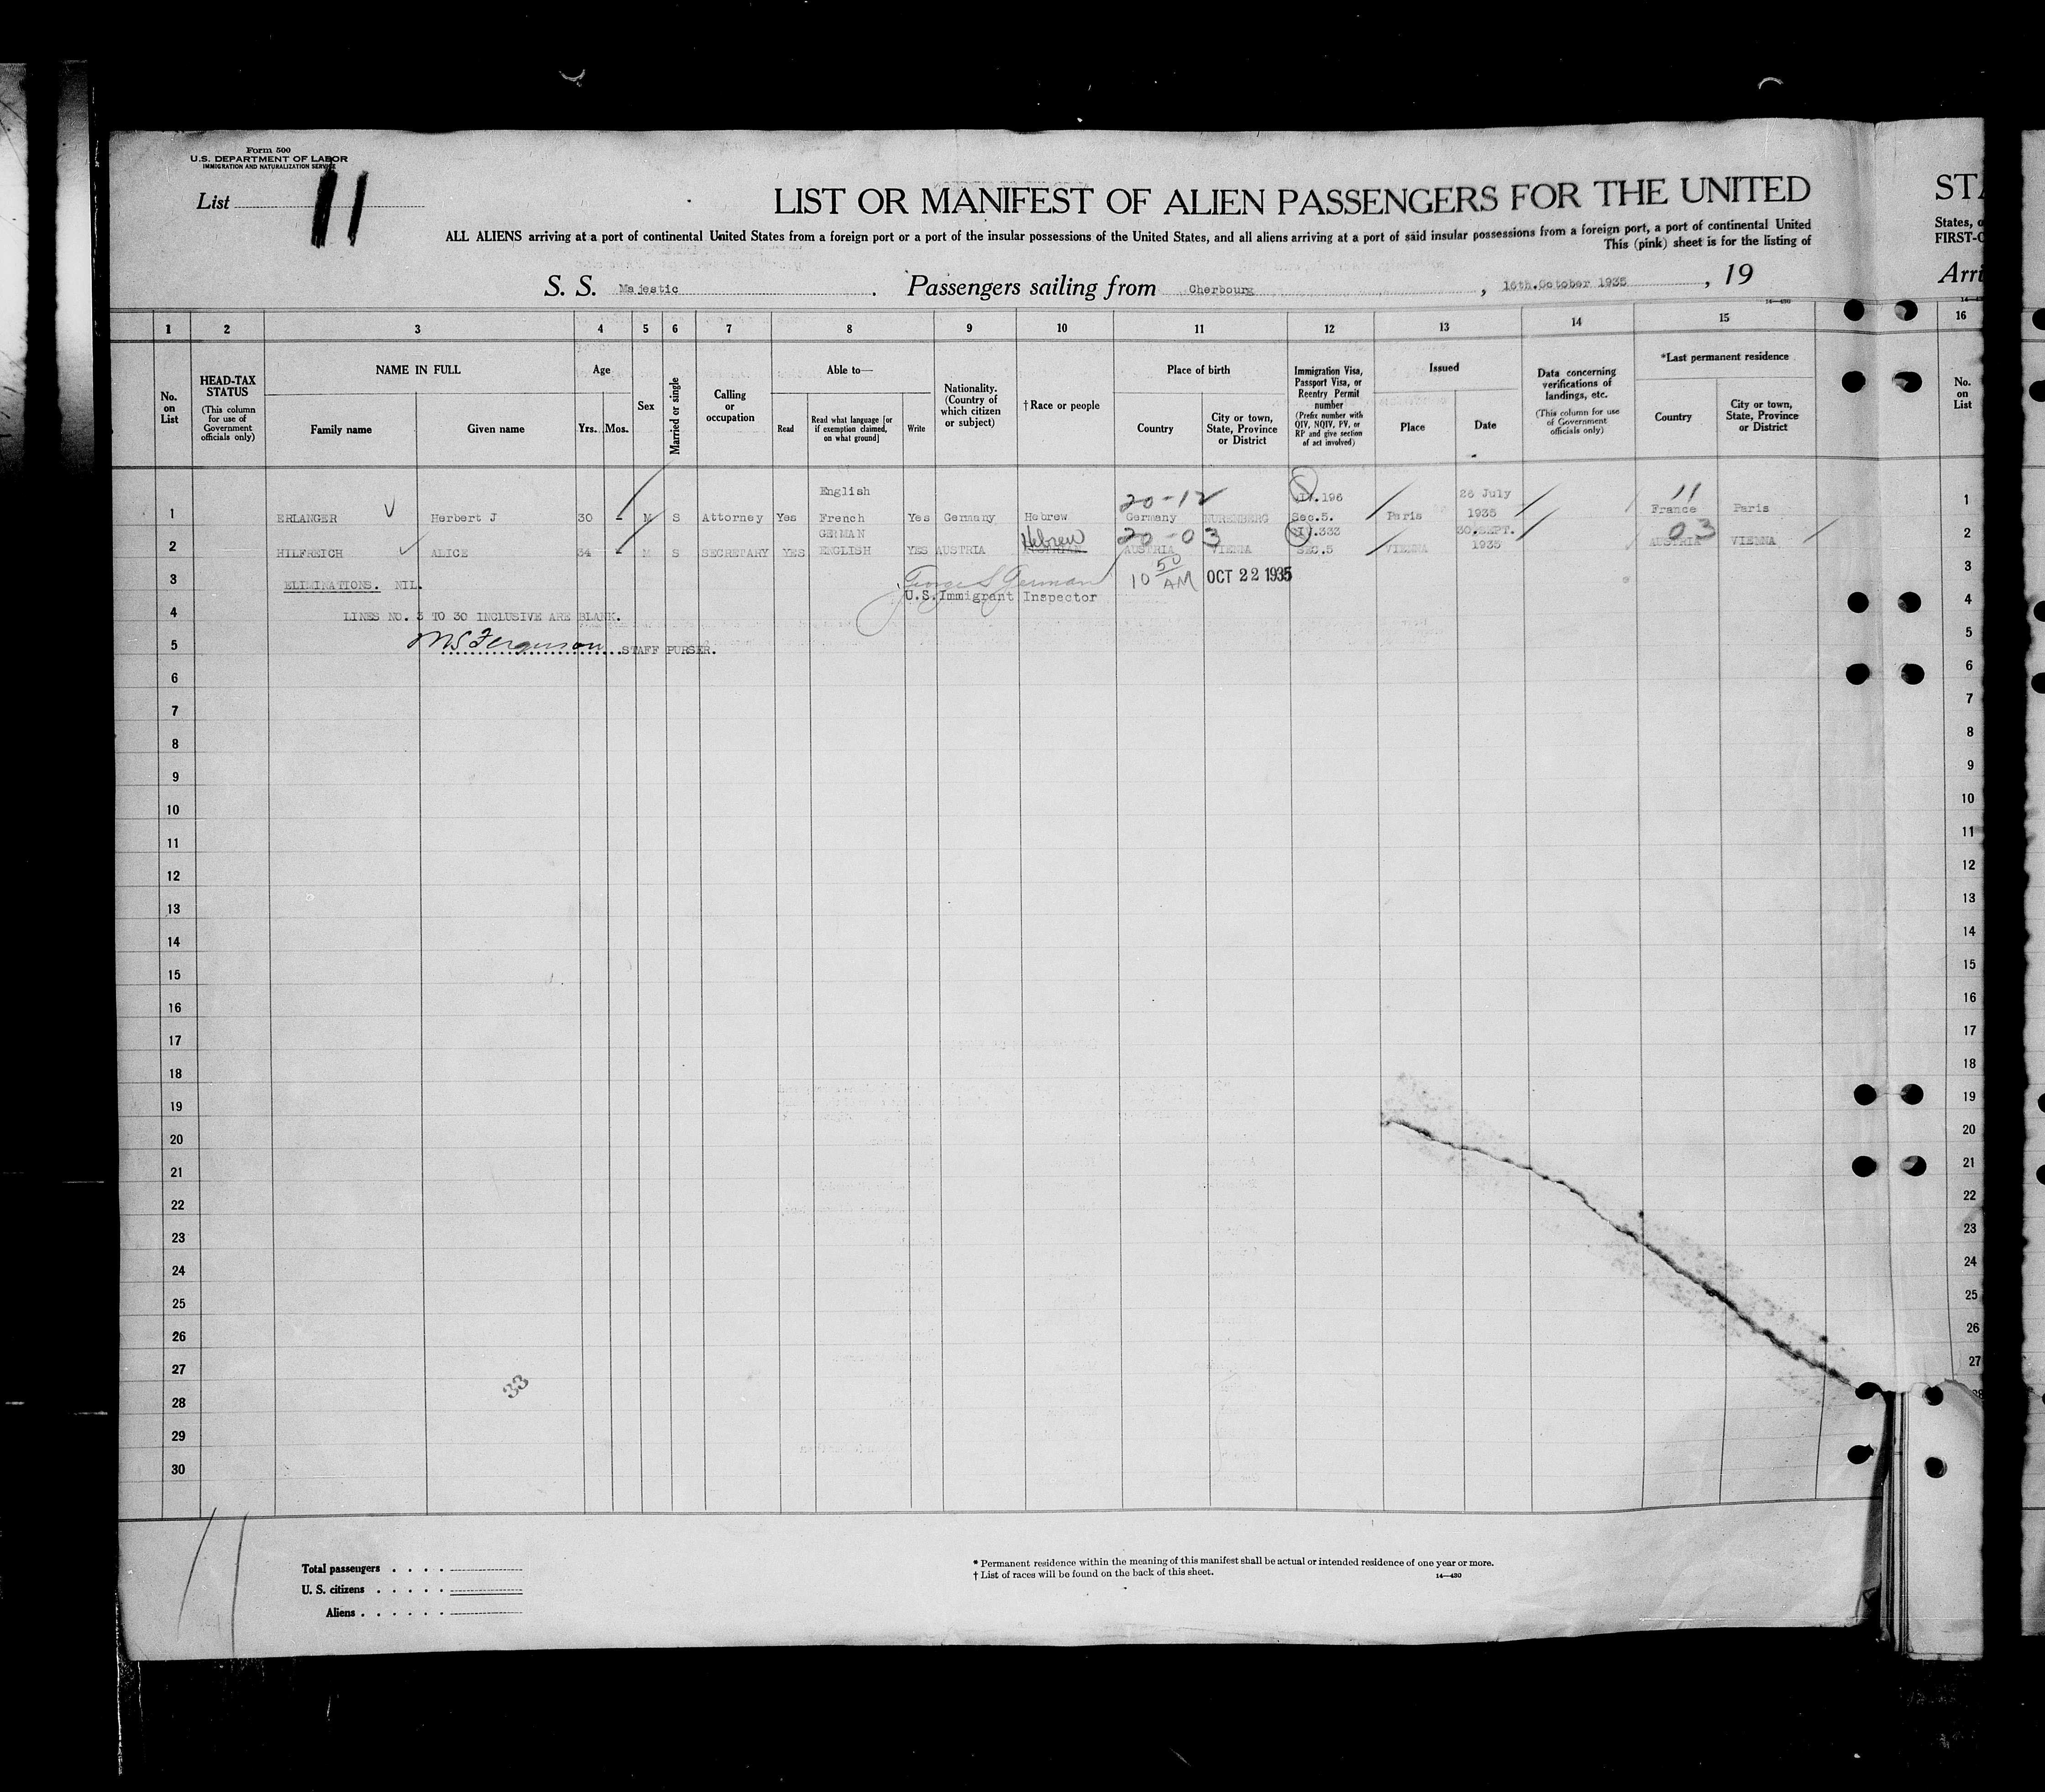 Form 500
U.S. DEPARTMENT OF LABOR
IMMIGRATION AND NATURALIZATION SERVICE
List 11
LIST OR MANIFEST OF ALIEN PASSENGERS FOR THE UNITED
ALL ALIENS arriving at a port of continental United States from a foreign port or a port of the insular possessions of the United States, and all aliens arriving at a port of said insular possessions from a foreign port, a port of continental United
This (pink) sheet is for the listing of
S. S. Majestic . Passengers sailing from Cherbourg , 16th.October 1935 , 19
14—430
STA
States, o
FIRST-C
Arri
1 2 3 4 5 6 7 8 9 10 11 12 13 14 15 16
No. on List
HEAD-TAX STATUS
(This column for use of Government officials only)
NAME IN FULL
Family name
Given name
Age
Yrs. Mos.
Sex
Married or single
Calling or occupation
Able to—
Read
Read what language [or if exemption claimed, on what ground]
Write
Nationality. (Country of which citizen or subject)
† Race or people
Place of birth
Country
City or town, State, Province or District
Immigration Visa, Passport Visa, or Reentry Permit number
(Prefix number with QIV, NQIV, PV, or RP and give section of act involved)
Issued
Place
Date
Data concerning verifications of landings, etc.
(This column for use of Government officials only)
*Last permanent residence
Country
City or town, State, Province or District
No. on List
English 20-12 .196 26 July 11
1 ERLANGER Herbert J 30 - M S Attorney Yes French Yes Germany Hebrew Germany NUREMBERG Sec.5. Paris 1935 France Paris 1
GERMAN Hebrew 20-03 .333 30.SEPT. 03
2 HILFREICH ALICE 34 - M S SECRETARY YES ENGLISH YES AUSTRIA AUSTRIA VIENNA SEC.5 VIENNA 1935 AUSTRIA VIENNA 2
3 ELIMINATIONS. NIL. George S German 10 50 AM OCT 22 1935 3
U.S. Immigrant Inspector
4 LINES NO. 3 TO 30 INCLUSIVE ARE BLANK. 4
5 MS Ferguson STAFF PURSER. 5
6 6
7 7
8 8
9 9
10 10
11 11
12 12
13 13
14 14
15 15
16 16
17 17
18 18
19 19
20 20
21 21
22 22
23 23
24 24
25 25
26 26
27 27
33
28 28
29
30
11
Total passengers . . . .
U. S. citizens . . . . .
Aliens . . . . . .
* Permanent residence within the meaning of this manifest shall be actual or intended residence of one year or more.
† List of races will be found on the back of this sheet.
14—430